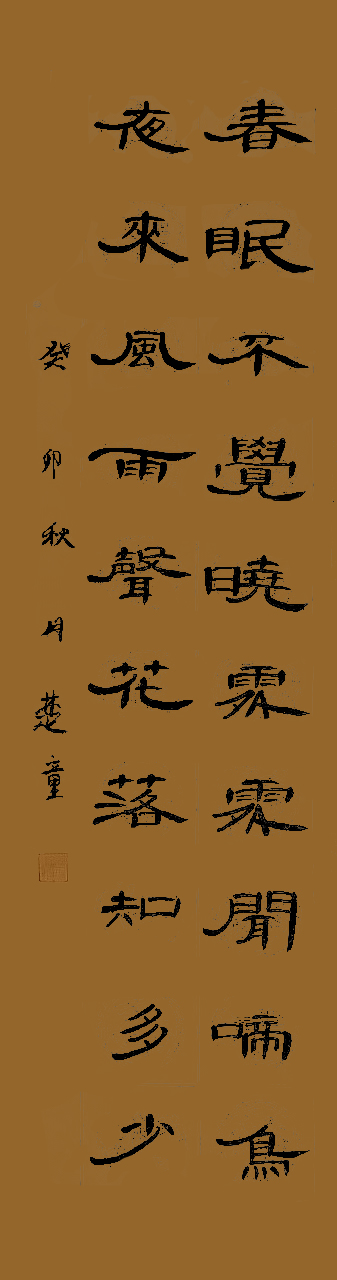 春眠不覺曉處處聞啼鳥
夜來風雨聲花落知多少
癸卯秋月楚童